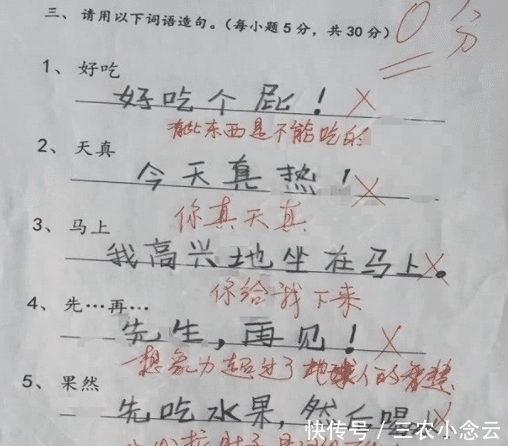 三、请用以下词语造句。(每小题5分，共30分)
0分
1、好吃
好吃个屁！
有些东西是不能吃的
2、天真
今天真热！
你真天真
3、马上
我高兴地坐在马上。
你给我下来
4、先…再…
先生，再见！
想象力超过了地球人的智慧
5、果然
先吃水果，然后喝
快传号 / 三农小念云